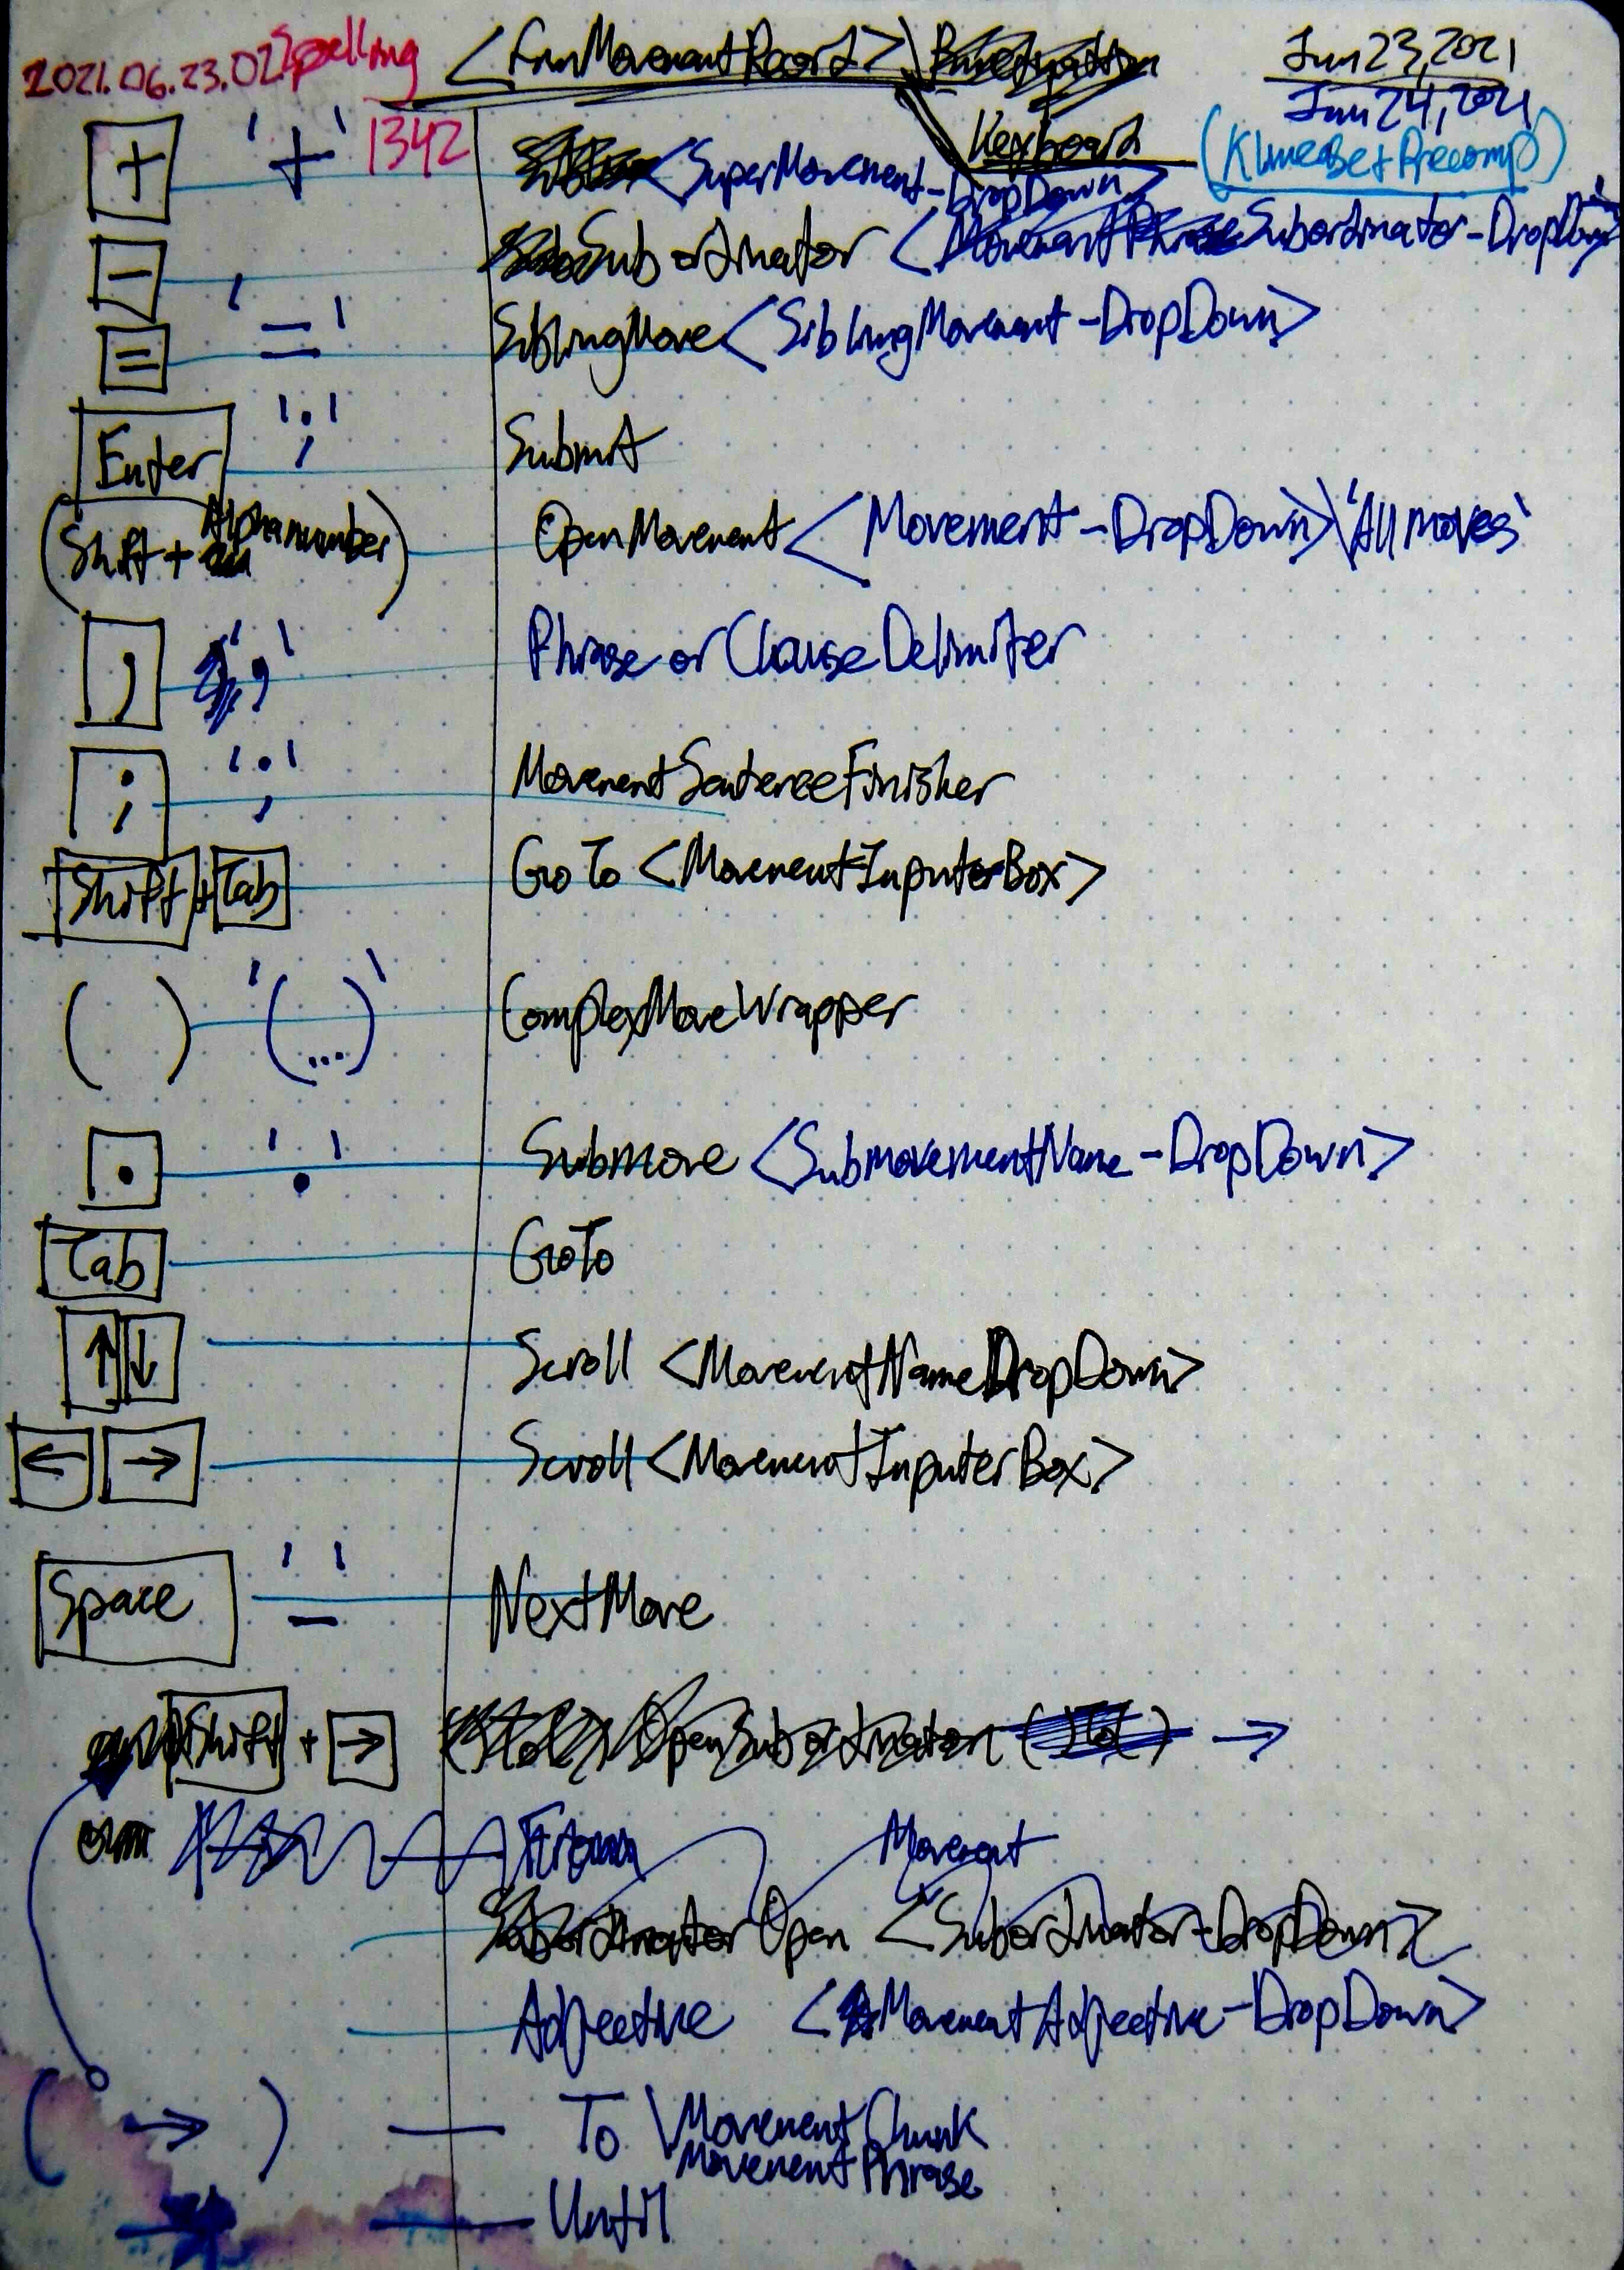 2021.06.23.02 Spelling <FrmMovementRecord> \ Jun 23, 2021
Jun 24, 2021
1342 Keyboard (KlineaBet Precomp)
+ '+' <SuperMovement-DropDown>
- ' Subordinator <Subordinator-DropDown>
= '=' SiblingMove <SiblingMovement-DropDown>
Enter ';' Submit
(Shift + Alphanumber) OpenMovement <Movement-DropDown> \ 'All moves'
, ',' Phrase or Clause Delimiter
; ';' MovementSentenceFinisher
Shift + Tab GoTo <MovementInputerBox>
( ) '(...)' ComplexMoveWrapper
. '.' Submove <SubmovementName-DropDown>
Tab GoTo
↑ ↓ Scroll <MovementNameDropDown>
← → Scroll <MovementInputerBox>
Space '_' NextMove
Shift + → →
Movement
SubordinatorOpen <Subordinator-DropDown>
Adjective <MovementAdjective-DropDown>
( → ) — To \ MovementChunk
MovementPhrase
— Until